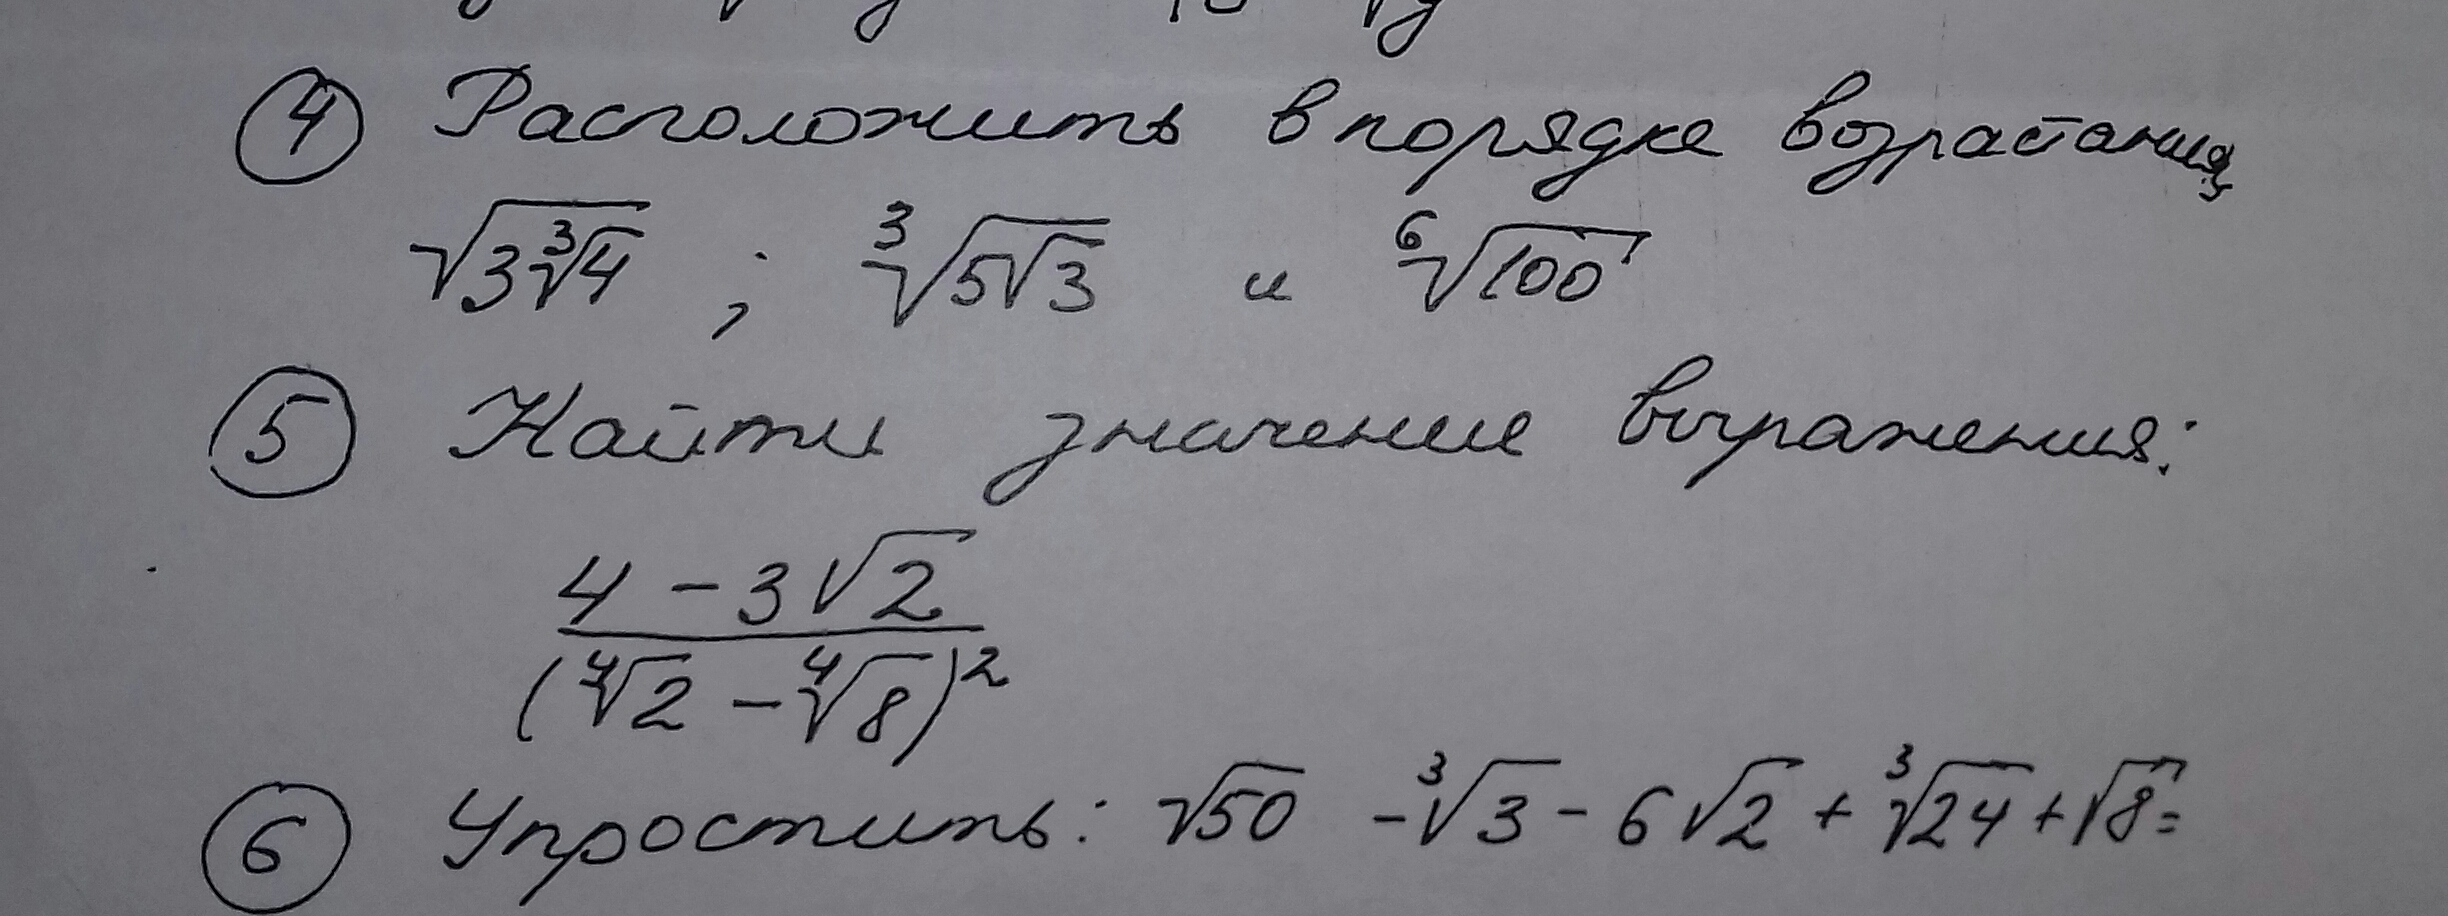 ④ Расположить в порядке возрастания
√(3∛4) ; ∛(5√3) и ⁶√100
⑤ Найти значение выражения:
4 - 3√2
(⁴√2 - ⁴√8)²
⑥ Упростить: √50 - ∛3 - 6√2 + ∛24 + √8 =